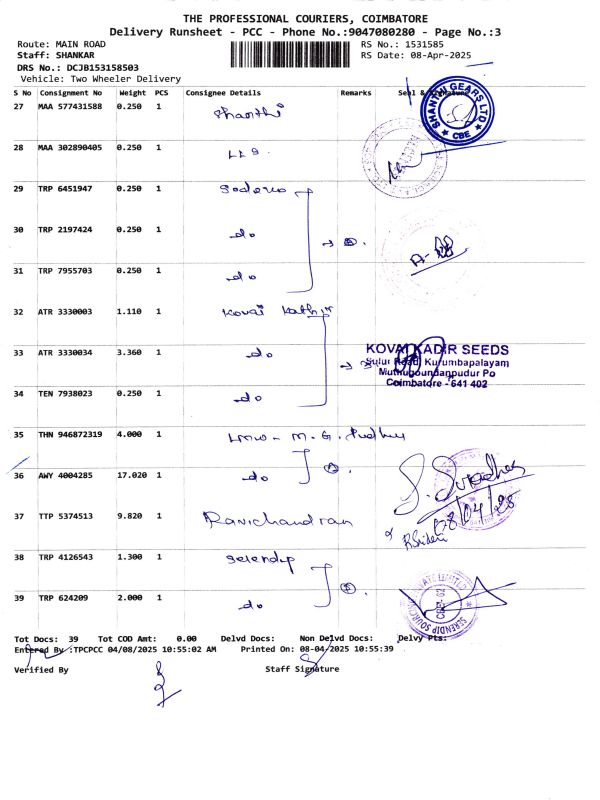 THE PROFESSIONAL COURIERS, COIMBATORE
Delivery Runsheet - PCC - Phone No.:9047080280 - Page No.:3
Route: MAIN ROAD
RS No.: 1531585
Staff: SHANKAR
RS Date: 08-Apr-2025
DRS No.: DCJB153158503
Vehicle: Two Wheeler Delivery
S No Consignment No Weight PCS Consignee Details Remarks Seal & Signature
27 MAA 577431588 0.250 1 Shanthi
SHANTHI GEARS LTD
CBE
28 MAA 302890405 0.250 1
29 TRP 6451947 0.250 1
30 TRP 2197424 0.250 1 do
31 TRP 7955703 0.250 1 do
32 ATR 3330003 1.110 1 Kovai Kathir
33 ATR 3330034 3.360 1 do
KOVAI KADIR SEEDS
Sulur Road, Kurumbapalayam
Muthugoundanpudur Po
Coimbatore - 641 402
34 TEN 7938023 0.250 1 do
35 THN 946872319 4.000 1 LMW - M. G. Pudhur
36 AWY 4004285 17.020 1 do
37 TTP 5374513 9.820 1 Ravichandran
38 TRP 4126543 1.300 1 Serendip
39 TRP 624209 2.000 1 do
Tot Docs: 39 Tot COD Amt: 0.00 Delvd Docs: Non Delvd Docs: Delvy Pts:
Entered By :TPCPCC 04/08/2025 10:55:02 AM Printed On: 08-04-2025 10:55:39
Verified By Staff Signature